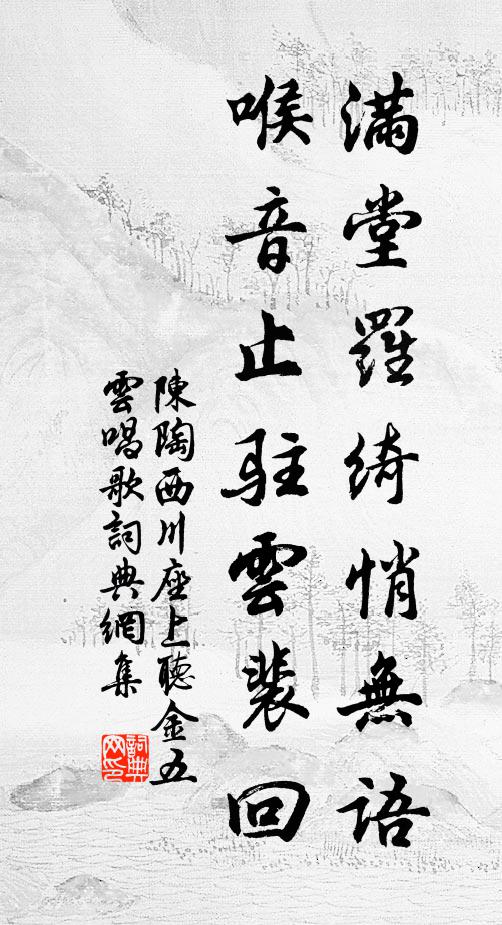 滿堂羅綺悄無語
喉音止駐雲裴回
陳陶西川座上聽金五
雲唱歌詞典網集
詞典
网印